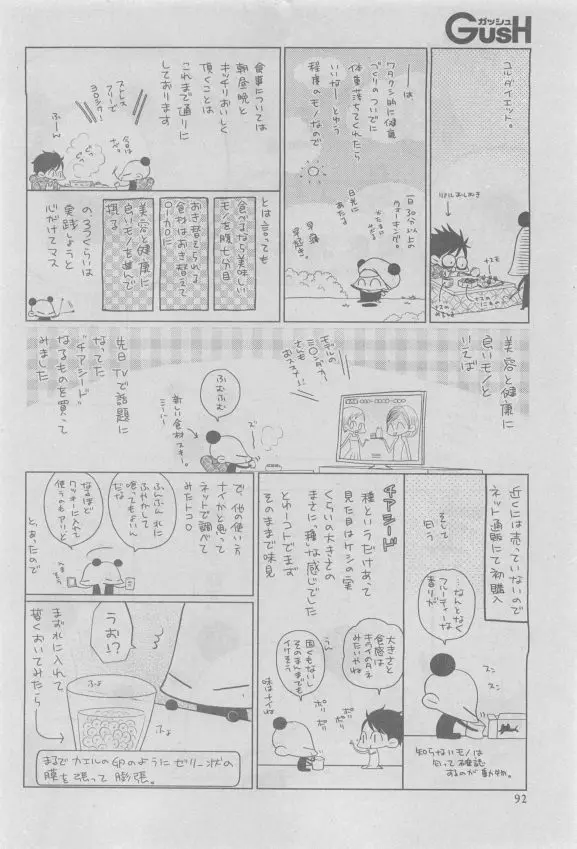 ガッシュ
GUSH
ユルダイエット。
ナスモ
ワタクシ的に健康
づくりのついでに
体重落ちてくれたら
いいなーしゅう
程度のモノなので
一日30分以上の
ウォーキング。
日光に
あたる
早寝
早起き。
食事については
朝昼晩と
キッチリおいしく
頂くことは
これまで通りに
しております
ストレス
フリーで
ヨロシク!
ふーん
とは言っても
食べるなら美味しい
モノを腹七分目
おき替えられる
食材はおき替えて
○ーカロに
美容と健康に
良いモノを進んで
摂る
の3つくらいは
実践しようと
心がけてマス
美容と健康に
良いモノと
いえば
モデルの
ミ○ンダ・カー
さんも
おススメ!!
ふむふむ
新しい食材スキー。
ミーハー
先日TVで話題に
なってた
“チアシード”
なるものを買って
みました
近くには売っていないので
ネット通販にて初購入
そして
匂う
…なんとなく
フルーティーな
香りが
スン
スン
知らないモノは
匂って確認
するのが動物。
チアシード
種というだけあって
見た目はケシの実
くらいの大きさの
まさに“種”な感じでした
とゆーコトでまず
そのままで味見
大きさと
食感は
キウイのタネ
みたいやね
ポリ
ポリ
ポリ
うん
固くもないし
そのまんまでも
イけそう
味はナイね
で、他の使い方
ナイかと思って
ネットで調べて
みたトコロ
ふんふん、水に
ふやかして
喰ってもよいん
だな
なるほど
クッキーに入れて
使うのもアリと
と、あったので
まず水に入れて
暫くおいてみたら
うお!?
ふよ
ふよ
まるでカエルの卵のようにゼリー状の
膜を張って膨張。
92